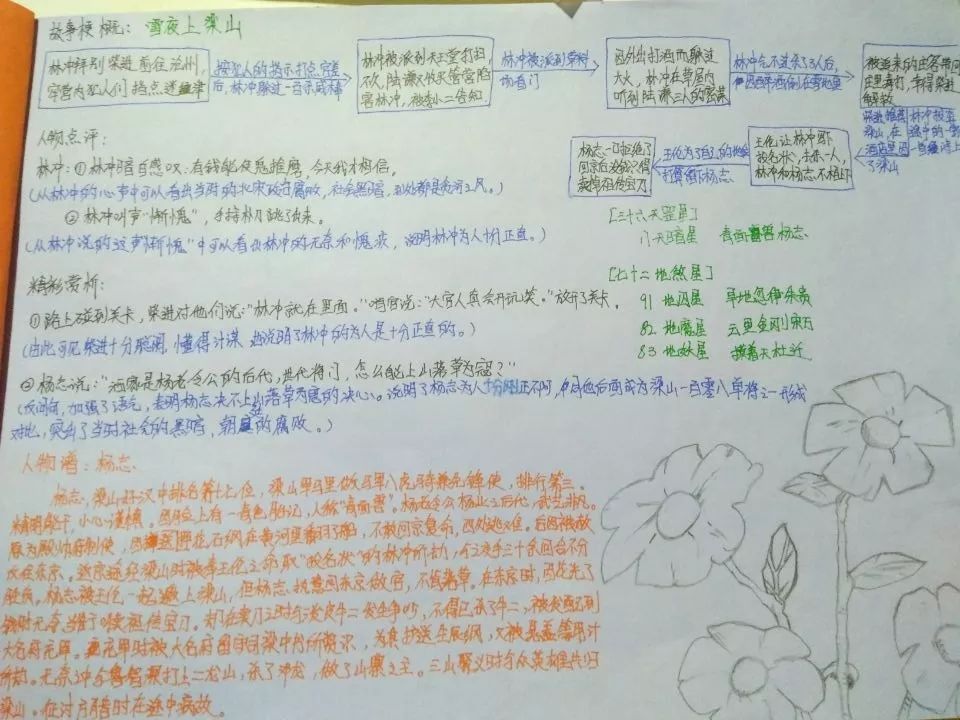 故事梗概：雪夜上梁山
林冲拜别柴进前往沧州，
牢营内犯人们指点迷津
按犯人的指示打点完差
后，林冲躲过一百杀威棒
林冲被派到天王堂打扫
不久，陆谦又收买管营陷
害林冲，被李小二告知
林冲被派到草料
场看门
因外出打酒而躲过
大火，林冲在草屋内
听到陆谦三人的密谋
林冲气不过杀了3人后，
因酒醉倒在雪地里
被追来的庄客带回
庄里毒打，幸得柴进
解救
柴进推荐
梁山，在
酒店里
林冲投奔
途中的一
上
了梁山
王伦让林冲写下
投名状，去杀一人，
林冲和杨志不相下
王伦为了自己的地位
打算留下杨志
杨志一口拒绝了
回京后没钱只得
卖掉祖传宝刀
人物点评：
林冲：①林冲暗自感叹：有钱能使鬼推磨，今天我才相信。
（从林冲的心声中可以看出当时的北宋政府腐败，社会黑暗，到处都是贪污之风。）
②林冲叫声“惭愧”，手持朴刀跳了出来。
（从林冲说的这声“惭愧”中可以看出林冲的无奈和愧疚，说明林冲为人十分正直。）
[三十六天罡星]
17天暗星 青面兽杨志
精彩赏析：
[七十二地煞星]
①路上碰到关卡，柴进对他们说：“林冲就在里面。”哨官说：“大官人真会开玩笑。”放开了关卡。
91 地囚星 旱地忽律朱贵
（由此可见柴进十分聪明，懂得计谋 也说明了林冲的为人是十分正直的。）
82 地魔星 云里金刚宋万
83 地妖星 摸着天杜迁
②杨志说：“洒家是杨老令公的后代，世代将门，怎么能上山落草为寇？”
（反问句，加强了语气，表明杨志决不上山落草为寇的决心。说明了杨志为人十分刚正不阿，和他后面成为梁山一百零八单将之一形成
对比，突出了当时社会的黑暗，朝廷的腐败。）
人物谱：杨志
杨志，梁山好汉中排名第十七位，梁山军马里做马军八虎骑兼先锋使，排行第三。
精明能干，小心谨慎。因脸上有一青色胎记，人称“青面兽”。杨老令公杨业之后代，武艺非凡。
原为殿帅府制使，因押送花石纲在黄河里翻了船，不敢回京复命，四处逃难。后因被赦
欲往东京，返京途经梁山时被奉王伦之命取“投名状”的林冲所劫，交手三十余回合不分
胜负。杨志被王伦一起邀上梁山，但杨志执意回东京做官，不慎落草。在东京时，因花光了
钱财无奈当街叫卖祖传宝刀。却在卖刀之时与泼皮牛二发生争吵，不得已杀了牛二，被发配到
大名府充军。充军时被大名府留守司梁中书所赏识，为其护送生辰纲，又被晁盖等用计
所劫。无奈之中与鲁智深打上二龙山，杀了邓龙，做了山寨之主。三山聚义时与众英雄共归
梁山。征讨方腊时在途中病故。